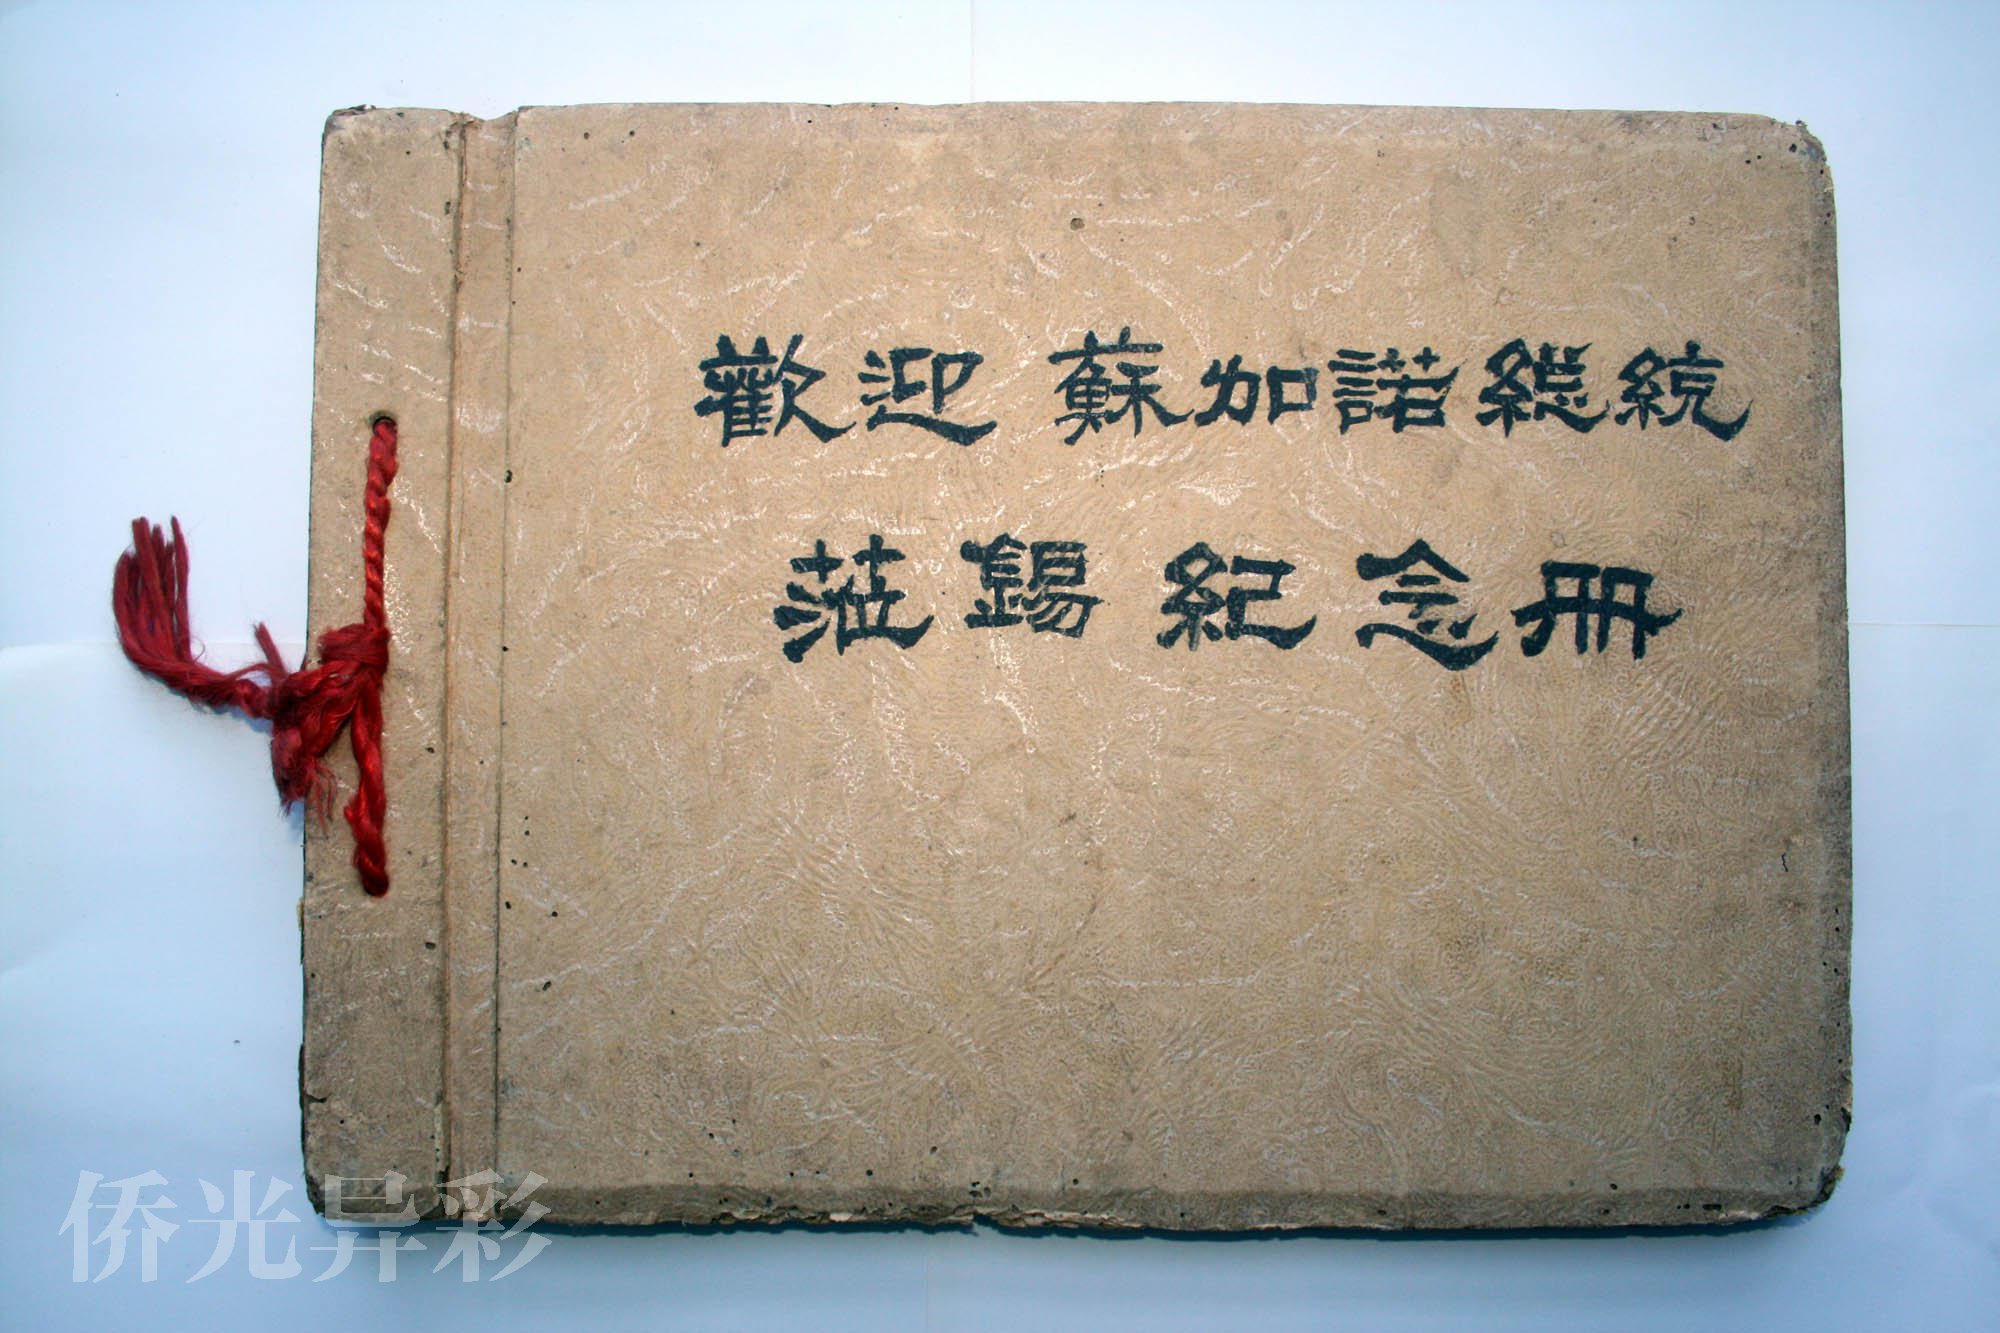 歡迎 蘇加諾總統
蒞錫 紀念冊
侨光异彩